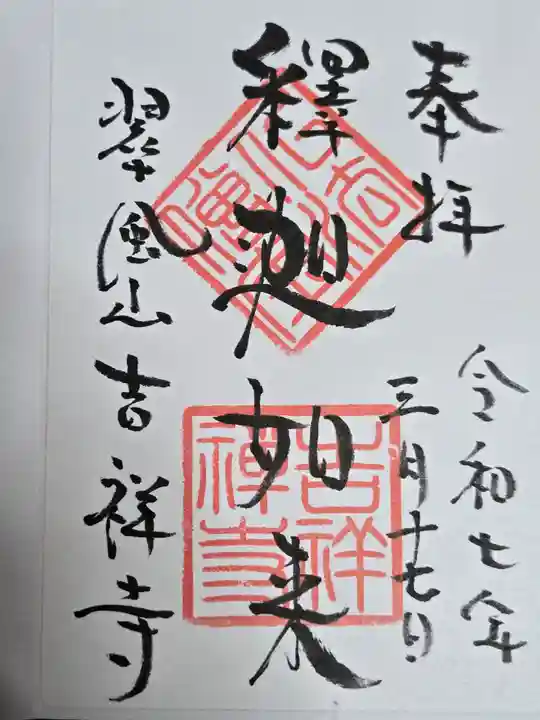 奉拝
令和七年
三月十七日
釋迦如来
翠風山吉祥寺
吉祥
禅寺